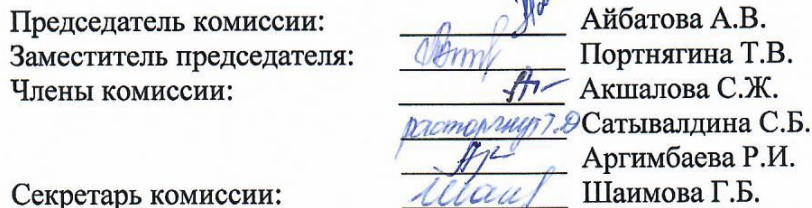 Председатель комиссии: Айбатова А.В.
Заместитель председателя: Портнягина Т.В.
Члены комиссии: Акшалова С.Ж.
расторгнут Т.Д Сатывалдина С.Б.
Аргимбаева Р.И.
Секретарь комиссии: Шаимова Г.Б.